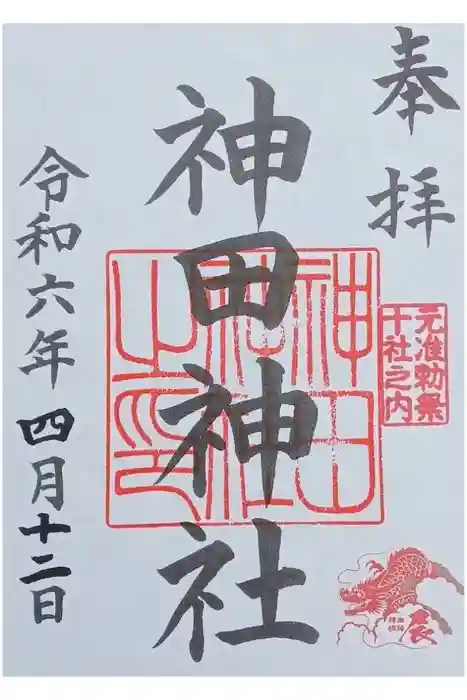 奉拝
神田神社
令和六年 四月十二日
神田
神社
之印
元准勅祭
十社之内
辰